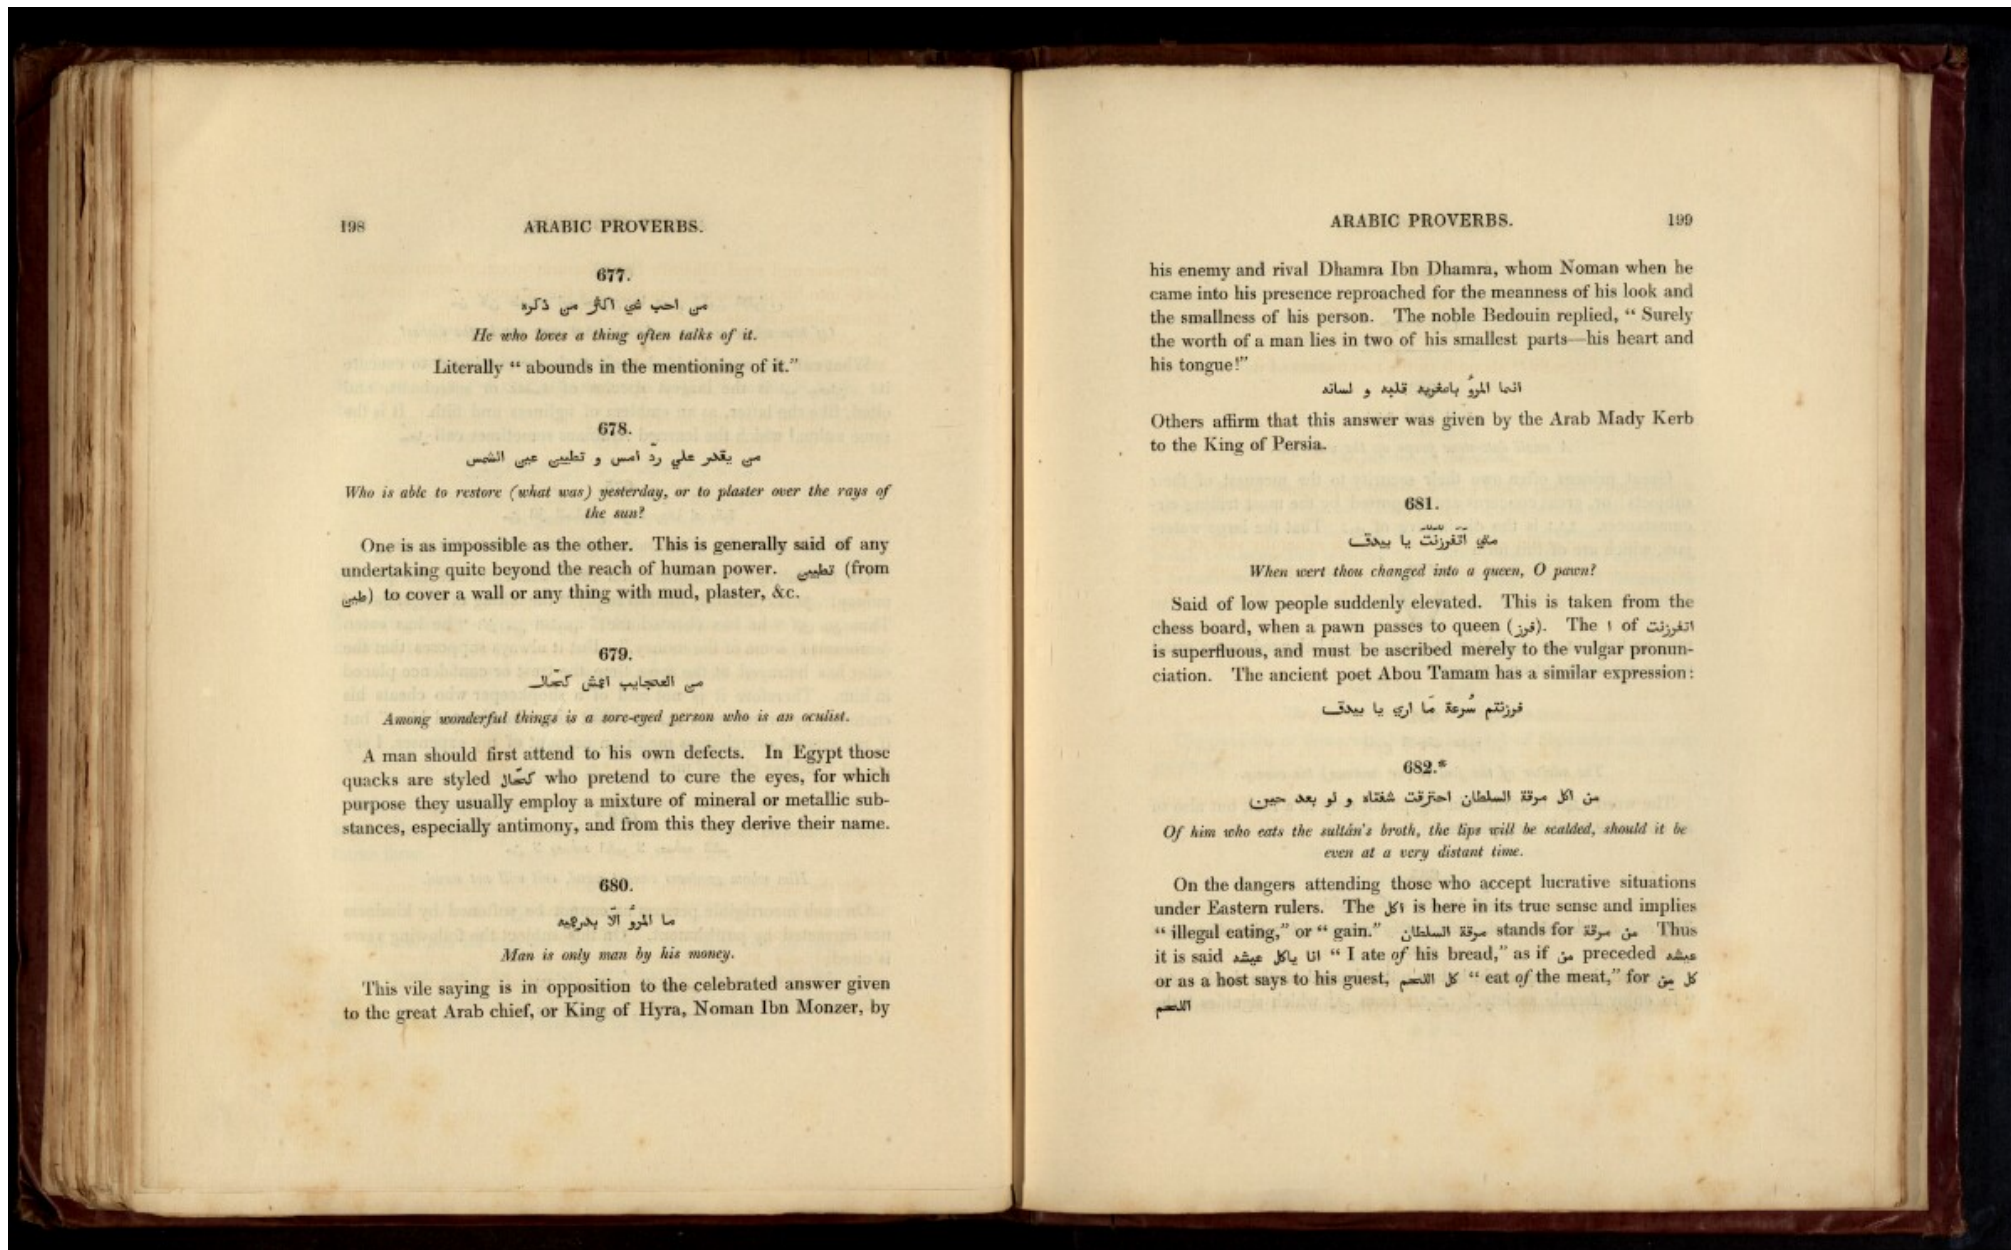 198 ARABIC PROVERBS.
677.
من احب شي اكثر من ذكره
He who loves a thing often talks of it.
Literally “ abounds in the mentioning of it.”
678.
من يقدر علي ردّ امس و تطيين عين الشمس
Who is able to restore (what was) yesterday, or to plaster over the rays of
the sun?
One is as impossible as the other. This is generally said of any
undertaking quite beyond the reach of human power. تطيين (from
طين) to cover a wall or any thing with mud, plaster, &c.
679.
من العجايب اعمش كحّال
Among wonderful things is a sore-eyed person who is an oculist.
A man should first attend to his own defects. In Egypt those
quacks are styled كحّال who pretend to cure the eyes, for which
purpose they usually employ a mixture of mineral or metallic sub-
stances, especially antimony, and from this they derive their name.
680.
ما المروُّ الّا بدرهميه
Man is only man by his money.
This vile saying is in opposition to the celebrated answer given
to the great Arab chief, or King of Hyra, Noman Ibn Monzer, by
ARABIC PROVERBS. 199
his enemy and rival Dhamra Ibn Dhamra, whom Noman when he
came into his presence reproached for the meanness of his look and
the smallness of his person. The noble Bedouin replied, “ Surely
the worth of a man lies in two of his smallest parts—his heart and
his tongue!”
انما المروُ باصغريه قلبه و لسانه
Others affirm that this answer was given by the Arab Mady Kerb
to the King of Persia.
681.
متي اتفرزنت يا بيدق
When wert thou changed into a queen, O pawn?
Said of low people suddenly elevated. This is taken from the
chess board, when a pawn passes to queen (فرز). The ا of اتفرزنت
is superfluous, and must be ascribed merely to the vulgar pronun-
ciation. The ancient poet Abou Tamam has a similar expression:
فرزنتم سُرعة مَا اري يا بيدق
682.*
من اكل مرقة السلطان احترقت شفتاه و لو بعد حين
Of him who eats the sultán's broth, the lips will be scalded, should it be
even at a very distant time.
On the dangers attending those who accept lucrative situations
under Eastern rulers. The اكل is here in its true sense and implies
“ illegal eating,” or “ gain.” مرقة السلطان stands for من مرقة Thus
it is said انا ياكل عيشه “ I ate of his bread,” as if من preceded عيشه
or as a host says to his guest, كل اللحم “ eat of the meat,” for كل مِن
اللحم